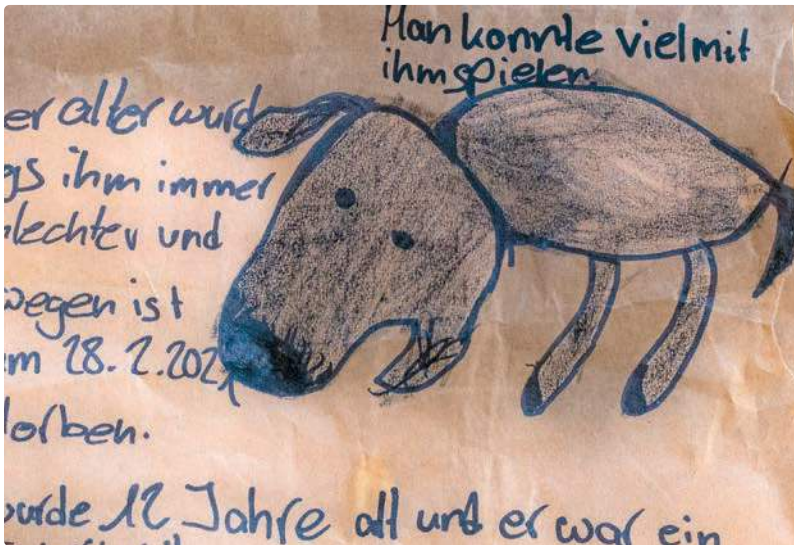 Man konnte viel mit
ihm spielen.
er älter wurd
gs ihm immer
hlechter und
wegen ist
m 28.2.2021
torben.
wurde 12 Jahre alt und er war ein